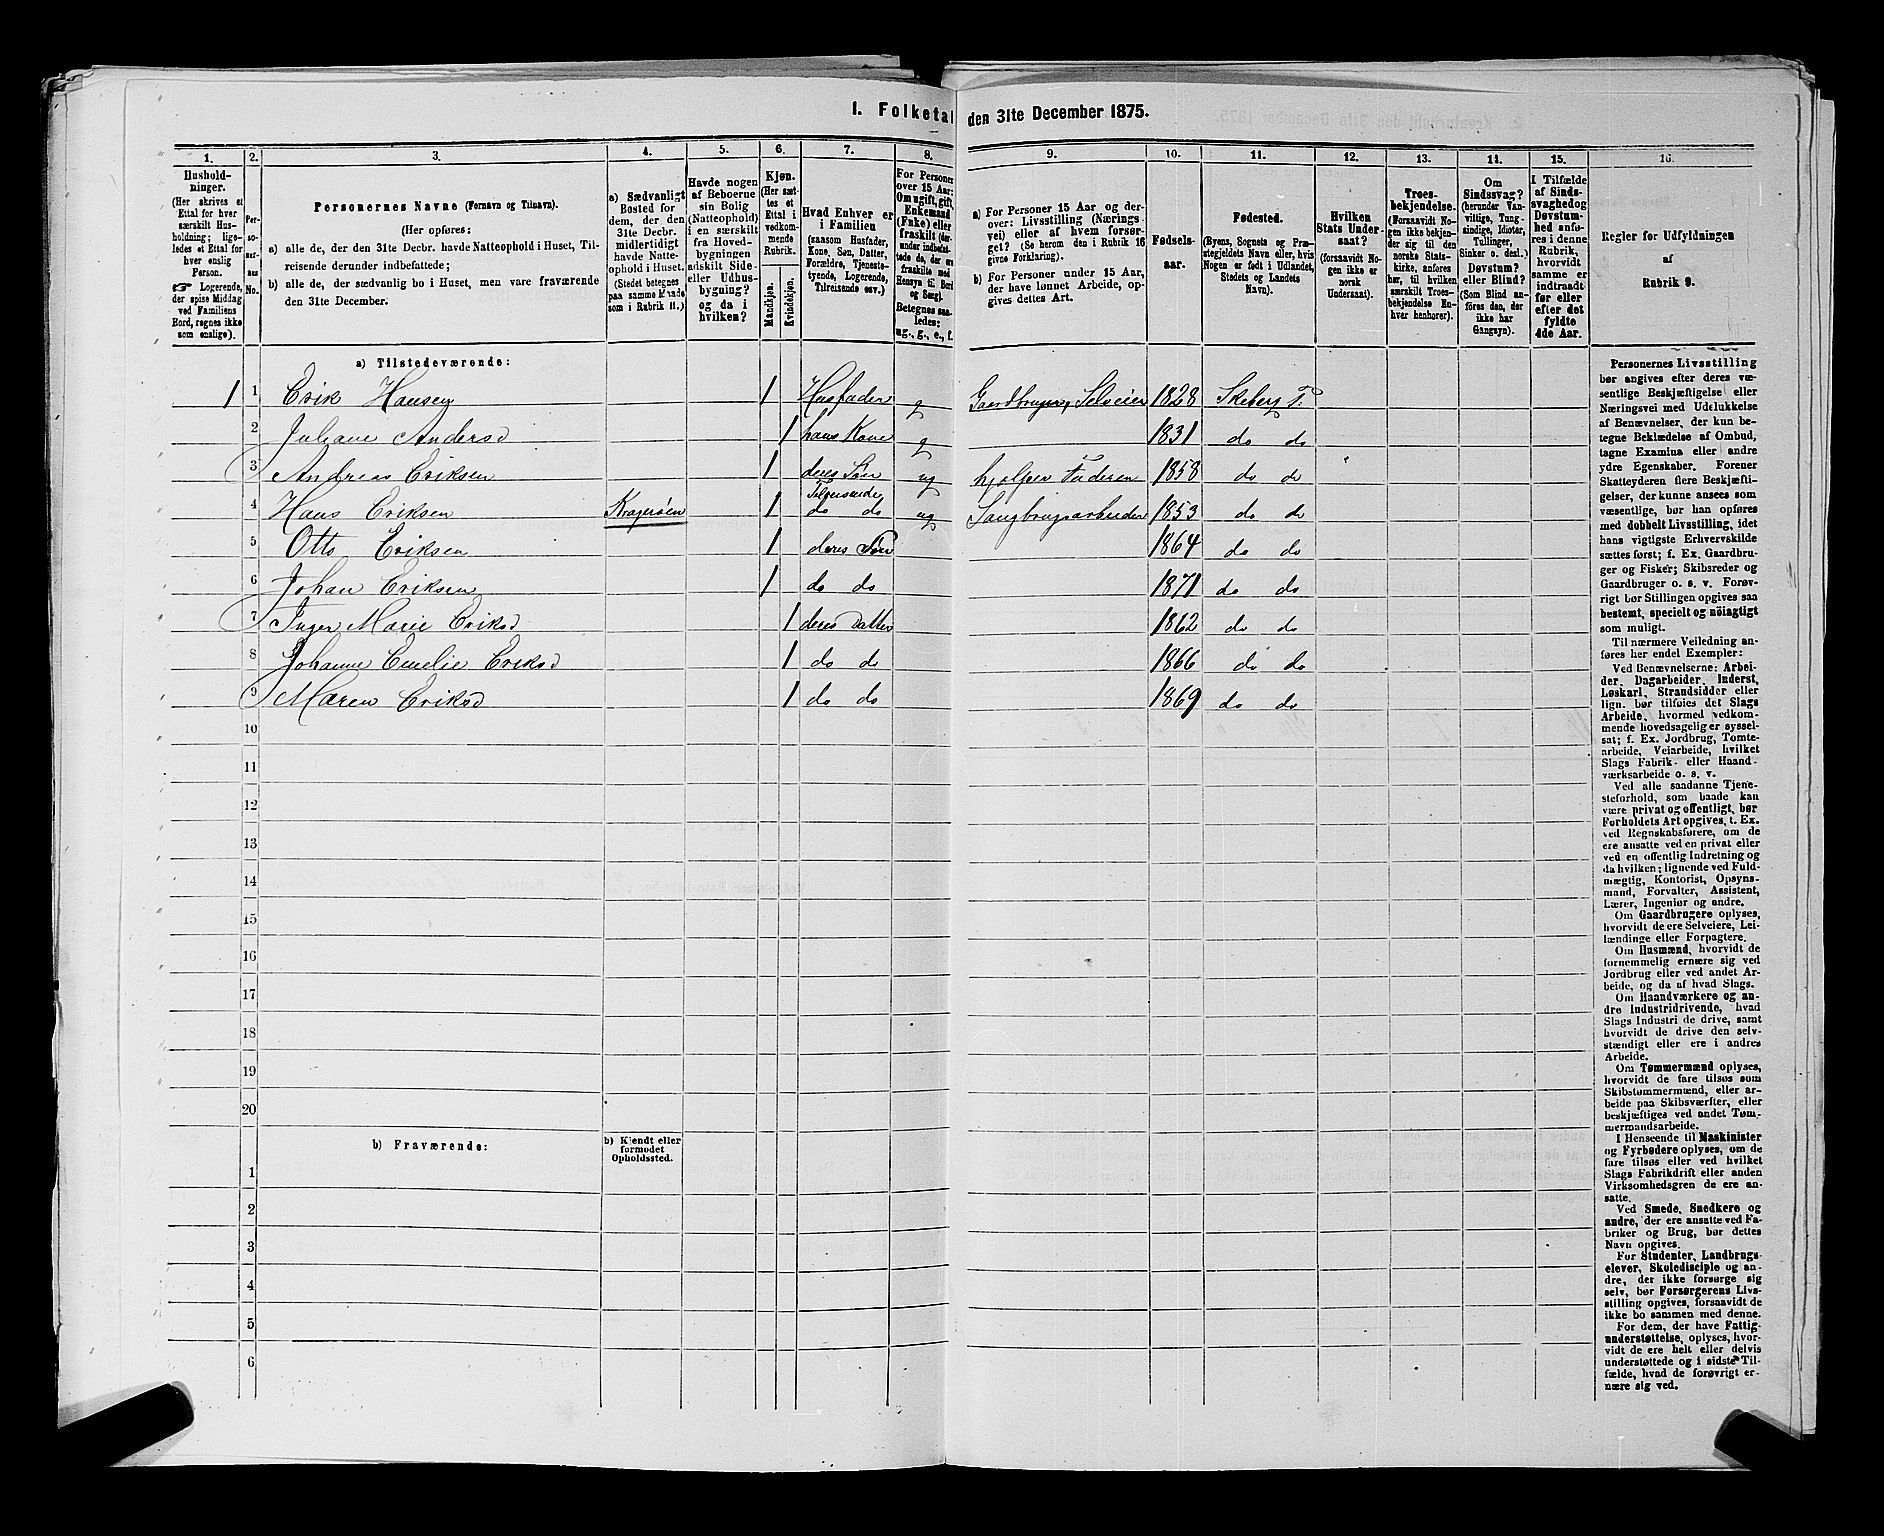 1. Folketal den 31te December 1875.
1. 2. 3. 4. 5. 6. 7. 8. 9. 10. 11. 12. 13. 14. 15. 16.
Husholdninger.
(Her skrives et
Ettal for hver
særskilt Hus-
holdning; lige-
ledes et Ettal for
hver enslig
Person.
☞ Logerende,
der spise Middag
ved Familiens
Bord, regnes ikke
som enslige).
Per-
so-
ner-
nes
No.
Personernes Navne (Fornavn og Tilnavn).
(Her opføres:
a) alle de, der den 31te Decbr. havde Natteophold i Huset, Til-
reisende derunder indbefattede;
b) alle de, der sædvanlig bo i Huset, men vare fraværende
den 31te December.
a) Sædvanligt
Bosted for
dem, der den
31te Decbr.
midlertidigt
havde Natte-
ophold i Huset.
(Stedet betegnes
paa samme Maade
som i Rubrik 11.)
Havde nogen
af Beboerne
sin Bolig
(Natteophold)
i en særskilt
fra Hoved-
bygningen
adskilt Side-
eller Udhus-
bygning?
og da i
hvilken?
Kjøn.
(Her sæt-
tes et
Ettal i
vedkom-
mende
Rubrik.
Mandkjøn.
Kvindekjøn.
Hvad Enhver er
i Familien
(saasom Husfader,
Kone, Søn, Datter,
Forældre, Tjeneste-
tyende, Logerende,
Tilreisende osv.)
For Personer
over 15 Aar:
Om ugift, gift,
Enkemand
(Enke) eller
fraskilt (der-
under indbefat-
tede de, der ere
fraskilte med
Hensyn til Bord
og Seng).
Betegnes saa-
ledes:
ug., g., e., f.
a) For Personer 15 Aar og der-
over: Livsstilling (Nærings-
vei) eller af hvem forsør-
get? (Se herom den i Rubrik 16
givne Forklaring).
b) For Personer under 15 Aar,
der have lønnet Arbeide, op-
gives dettes Art.
Fødsels-
aar.
Fødested.
(Byens, Sognets og Præ-
stegjeldets Navn eller, hvis
Nogen er født i Udlandet,
Stedets og Landets
Navn).
Hvilken
Stats Under-
saat?
(forsaavidt No-
gen ikke er
norsk
Undersaat).
Troes-
bekjendelse.
(Forsaavidt No-
gen ikke bekjen-
der sig til den
norske Stats-
kirke, anføres
her, til hvilken
særskilt Troes-
bekjendelse En-
hver henhører).
Om
Sindssvag?
(herunder Van-
vittige, Tung-
sindige, Idioter,
Tullinger,
Sinker o. desl.).
Døvstum?
eller Blind?
(Som Blind an-
føres den, der
ikke har
Gangsyn).
I Tilfælde
af Sinds-
svaghed og
Døvstum-
hed anfø-
res i denne
Rubrik,
hvorvidt
samme er
indtraadt
før eller
efter det
fyldte
4de Aar.
Regler for Udfyldningen
af
Rubrik 9.
a) Tilstedeværende:
1 1 Erik Hansen 1 Husfader g Gaardbruger, Selveier 1828 Skeberg P.
2 Juliane Andersd 1 hans Kone g 1831 do do
3 Andreas Eriksen 1 deres Søn ug hjælper Faderen 1858 do do
4 Hans Eriksen Kragerøen 1 Tilreisende do do ug Saugbrugsarbeider 1853 do do
5 Otto Eriksen 1 deres Søn 1864 do do
6 Johan Eriksen 1 do do 1871 do do
7 Inger Marie Eriksd 1 deres Datter 1862 do do
8 Johanne Emelie Eriksd 1 do do 1866 do do
9 Maren Eriksd 1 do do 1869 do do
10
11
12
13
14
15
16
17
18
19
20
b) Fraværende:
b) Kjendt eller
formodet
Opholdssted.
1
2
3
4
5
6
Personernes Livsstilling
bør angives efter deres væ-
sentlige Beskjæftigelse eller
Næringsvei med Udelukkelse
af Benævnelser, der kun be-
tegne Beklædelse af Ombud,
tagne Examina eller andre
ydre Egenskaber. Forener
Skatteyderen flere Beskjæfti-
gelser, der kunne ansees som
væsentlige, bør han opføres
med dobbelt Livsstilling, idet
hans vigtigste Erhvervskilde
sættes først; f. Ex. Gaardbru-
ger og Fisker; Skibsreder og
Gaardbruger o. s. v. Forøv-
rigt bør Stillingen opgives saa
bestemt, specielt og nöiagtigt
som muligt.
Til nærmere Veiledning an-
føres her endel Exempler:
Ved Benævnelserne: Arbei-
der, Dagarbeider, Inderst,
Løskarl, Strandsidder eller
lign. bør tilføies det Slags
Arbeide, hvormed vedkom-
mende hovedsagelig er syssel-
sat; f. Ex. Jordbrug, Tomte-
arbeide, Veiarbeide, hvilket
Slags Fabrik- eller Haand-
værksarbeide o. s. v.
Ved alle saadanne Tjene-
steforhold, som baade kan
være privat og offentligt, bør
Forholdets Art opgives, t. Ex.
ved Regnskabsførere, om de
ere ansatte ved en privat eller
ved en offentlig Indretning og
da hvilken; lignende ved Fuld-
mægtig, Kontorist, Opsyns-
mand, Forvalter, Assistent,
Lærer, Ingeniør og andre.
Om Gaardbrugere oplyses,
hvorvidt de ere Selveiere, Lei-
lændinge eller Forpagtere.
Om Husmænd, hvorvidt de
fornemmelig ernære sig ved
Jordbrug eller ved andet Ar-
beide, og da af hvad Slags.
Om Haandværkere og an-
dre Industridrivende, hvad
Slags Industri de drive, samt
hvorvidt de drive den selv-
stændigt eller ere i andres
Arbeide.
Om Tømmermænd oplyses,
hvorvidt de fare tilsøs som
Skibstømmermænd, eller ar-
beide paa Skibsværfter, eller
beskjæftiges ved andet Tøm-
mermandsarbeide.
I Henseende til Maskinister
og Fyrbødere oplyses, om de
fare tilsøs eller ved hvilket
Slags Fabrikdrift eller anden
Virksomhedsgren de ere an-
satte.
Ved Smede, Snedkere og
andre, der ere ansatte ved Fa-
briker og Brug, bør dettes
Navn opgives.
For Studenter, Landbrugs-
elever, Skoledisciple og an-
dre, der ikke forsørge sig
selv, bør Forsørgerens Livs-
stilling opgives, forsaavidt de
ikke bo sammen med denne.
For dem, der have Fattig-
understøttelse, oplyses, hvor-
vidt de ere helt eller delvis
understøttede og i sidste Til-
fælde, hvad de forøvrigt er-
nære sig ved.